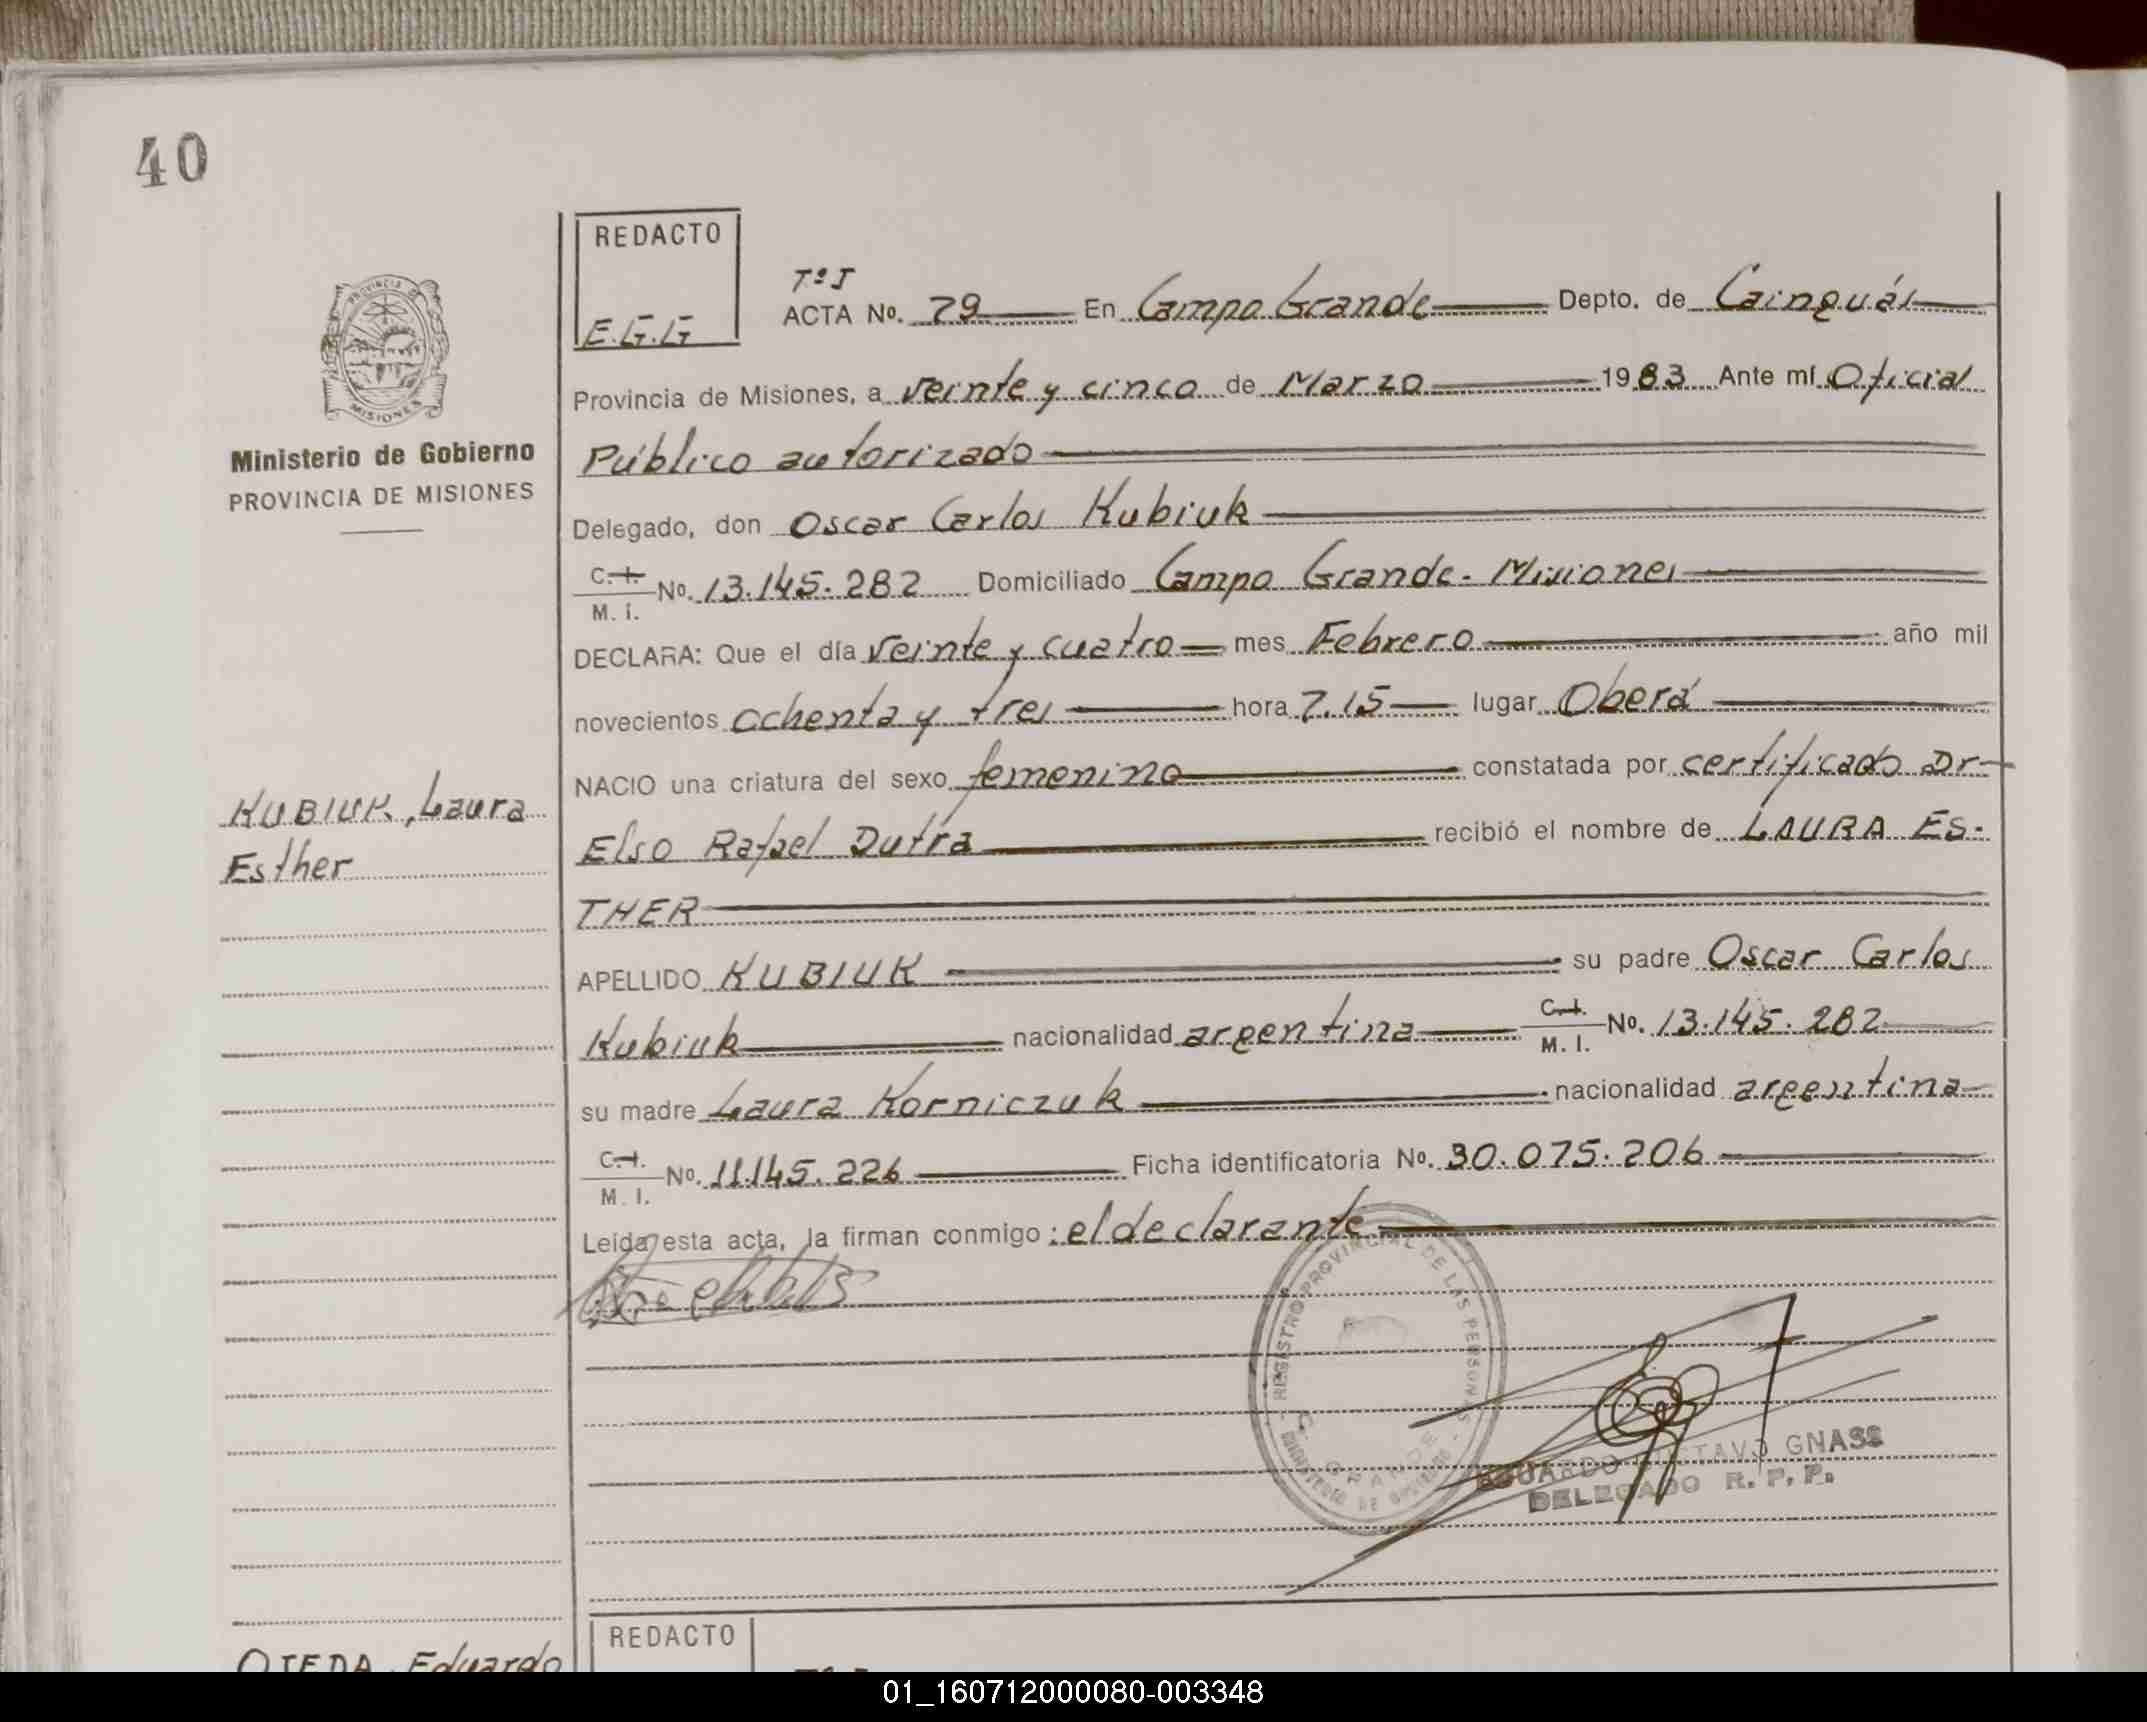 40
REDACTO
E.G.G
Tº I
ACTA No. 79 En Campo Grande Depto. de Cainguás
Provincia de Misiones, a veinte y cinco de Marzo 1983 Ante mí Oficial
Público autorizado
Delegado, don Oscar Carlos Kubiuk
C.I. M.I. No. 13.145.282 Domiciliado Campo Grande - Misiones
DECLARA: Que el día veinte y cuatro mes Febrero año mil
novecientos ochenta y tres hora 7.15 lugar Oberá
NACIO una criatura del sexo femenino constatada por certificado Dr
Elso Rafael Dutra recibió el nombre de LAURA ES-
THER
APELLIDO KUBIUK su padre Oscar Carlos
Kubiuk nacionalidad argentina C.I. M.I. No. 13.145.282
su madre Laura Korniczuk nacionalidad argentina
C.I. M.I. No. 11.145.226 Ficha identificatoria No. 30.075.206
Leída esta acta, la firman conmigo: el declarante
PROVINCIA DE
MISIONES
Ministerio de Gobierno
PROVINCIA DE MISIONES
KUBIUK, Laura
Esther
REGISTRO PROVINCIAL DE LAS PERSONAS
C. GRANDE
MINISTERIO DE GOBIERNO
EDUARDO GUSTAVO GNASS
DELEGADO R.P.P.
OJEDA, Eduardo
REDACTO
01_160712000080-003348